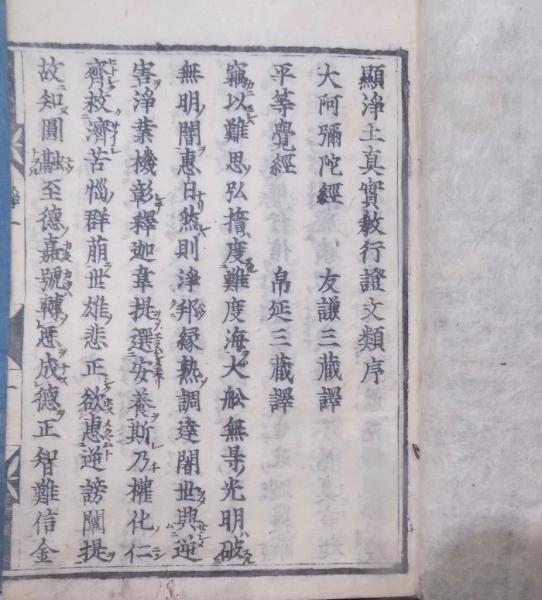 顯淨土真實教行證文類序
大阿彌陀經　友謙三藏譯
平等覺經　帛延三藏譯
竊以難思弘擔度難度海大舩無㝵光明破
無明闇惠日然則淨邦縁熟調達闍世興逆
害淨業機彰釋迦韋提選安養斯乃權化仁
齊救濟苦惱群萠世雄悲正欲惠逆謗闡提
故知圓融至德嘉號轉悪成德正智難信金